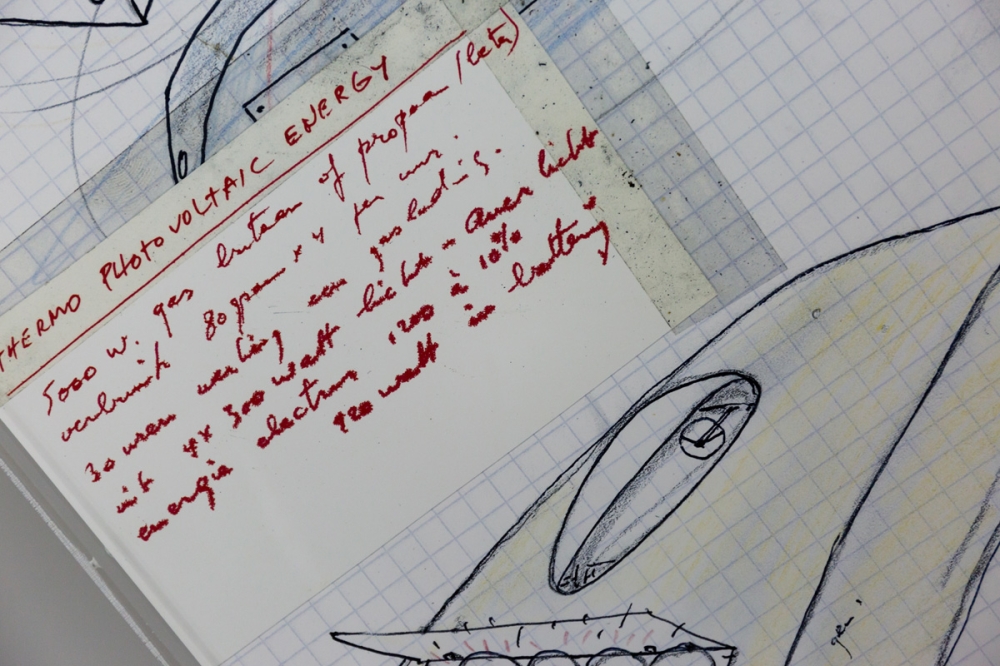 THERMO PHOTOVOLTAIC ENERGY
5000 W. gas butaan of propaan (beta)
verbruik 80 gram x 4 per uur.
30 uren werking een gaslading.
uit 4x 300 watt licht =
energie electron 1200 à 10%
120 watt in battery